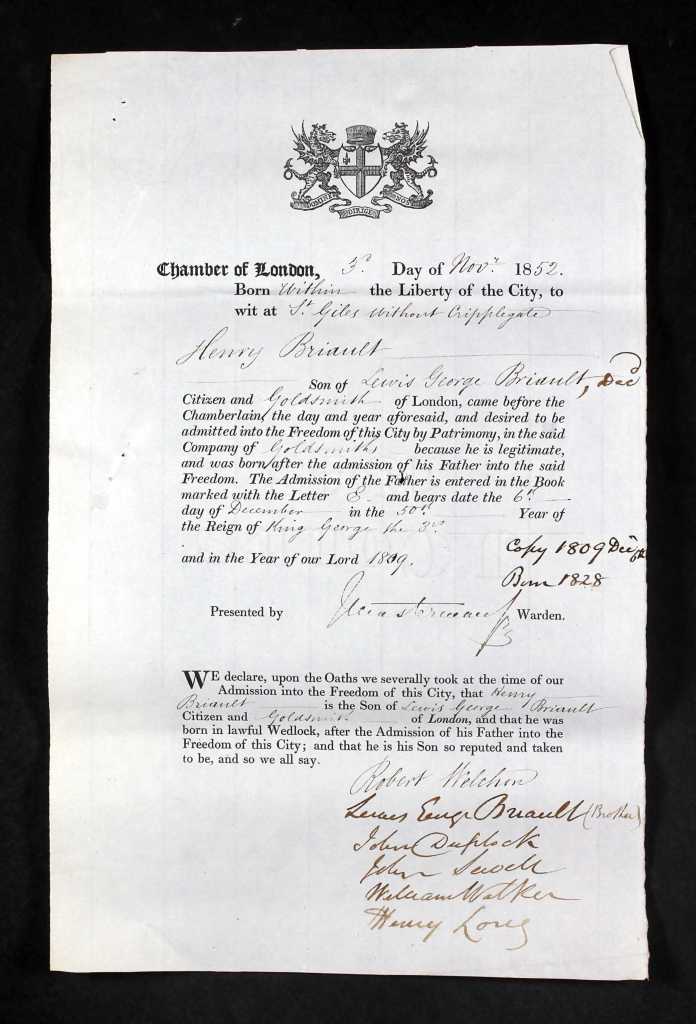 DOMINE DIRIGE NOS
Chamber of London, 3d. Day of Novr. 1852.
Born Within the Liberty of the City, to
wit at St. Giles without Cripplegate
Henry Briault
Son of Lewis George Briault, Decd
Citizen and Goldsmith of London, came before the
Chamberlain, the day and year aforesaid, and desired to be
admitted into the Freedom of this City by Patrimony, in the said
Company of Goldsmiths because he is legitimate,
and was born after the admission of his Father into the said
Freedom. The Admission of the Father is entered in the Book
marked with the Letter and bears date the 6th
day of December in the 50th Year of
the Reign of King George the 3rd
and in the Year of our Lord 1809.
Copy 1809
Born 1828
Presented by Warden.
WE declare, upon the Oaths we severally took at the time of our
Admission into the Freedom of this City, that Henry
Briault is the Son of Lewis George Briault
Citizen and Goldsmith of London, and that he was
born in lawful Wedlock, after the Admission of his Father into the
Freedom of this City; and that he is his Son so reputed and taken
to be, and so we all say.
Robert Welchon
Briault (Brother)
John Duplock
John Sewell
William Walker
Henry Long